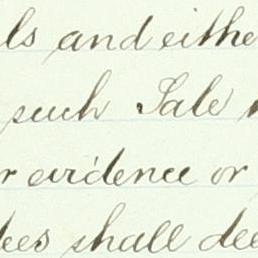 ls and eithe
such Sale
r evidence or
tees shall dee